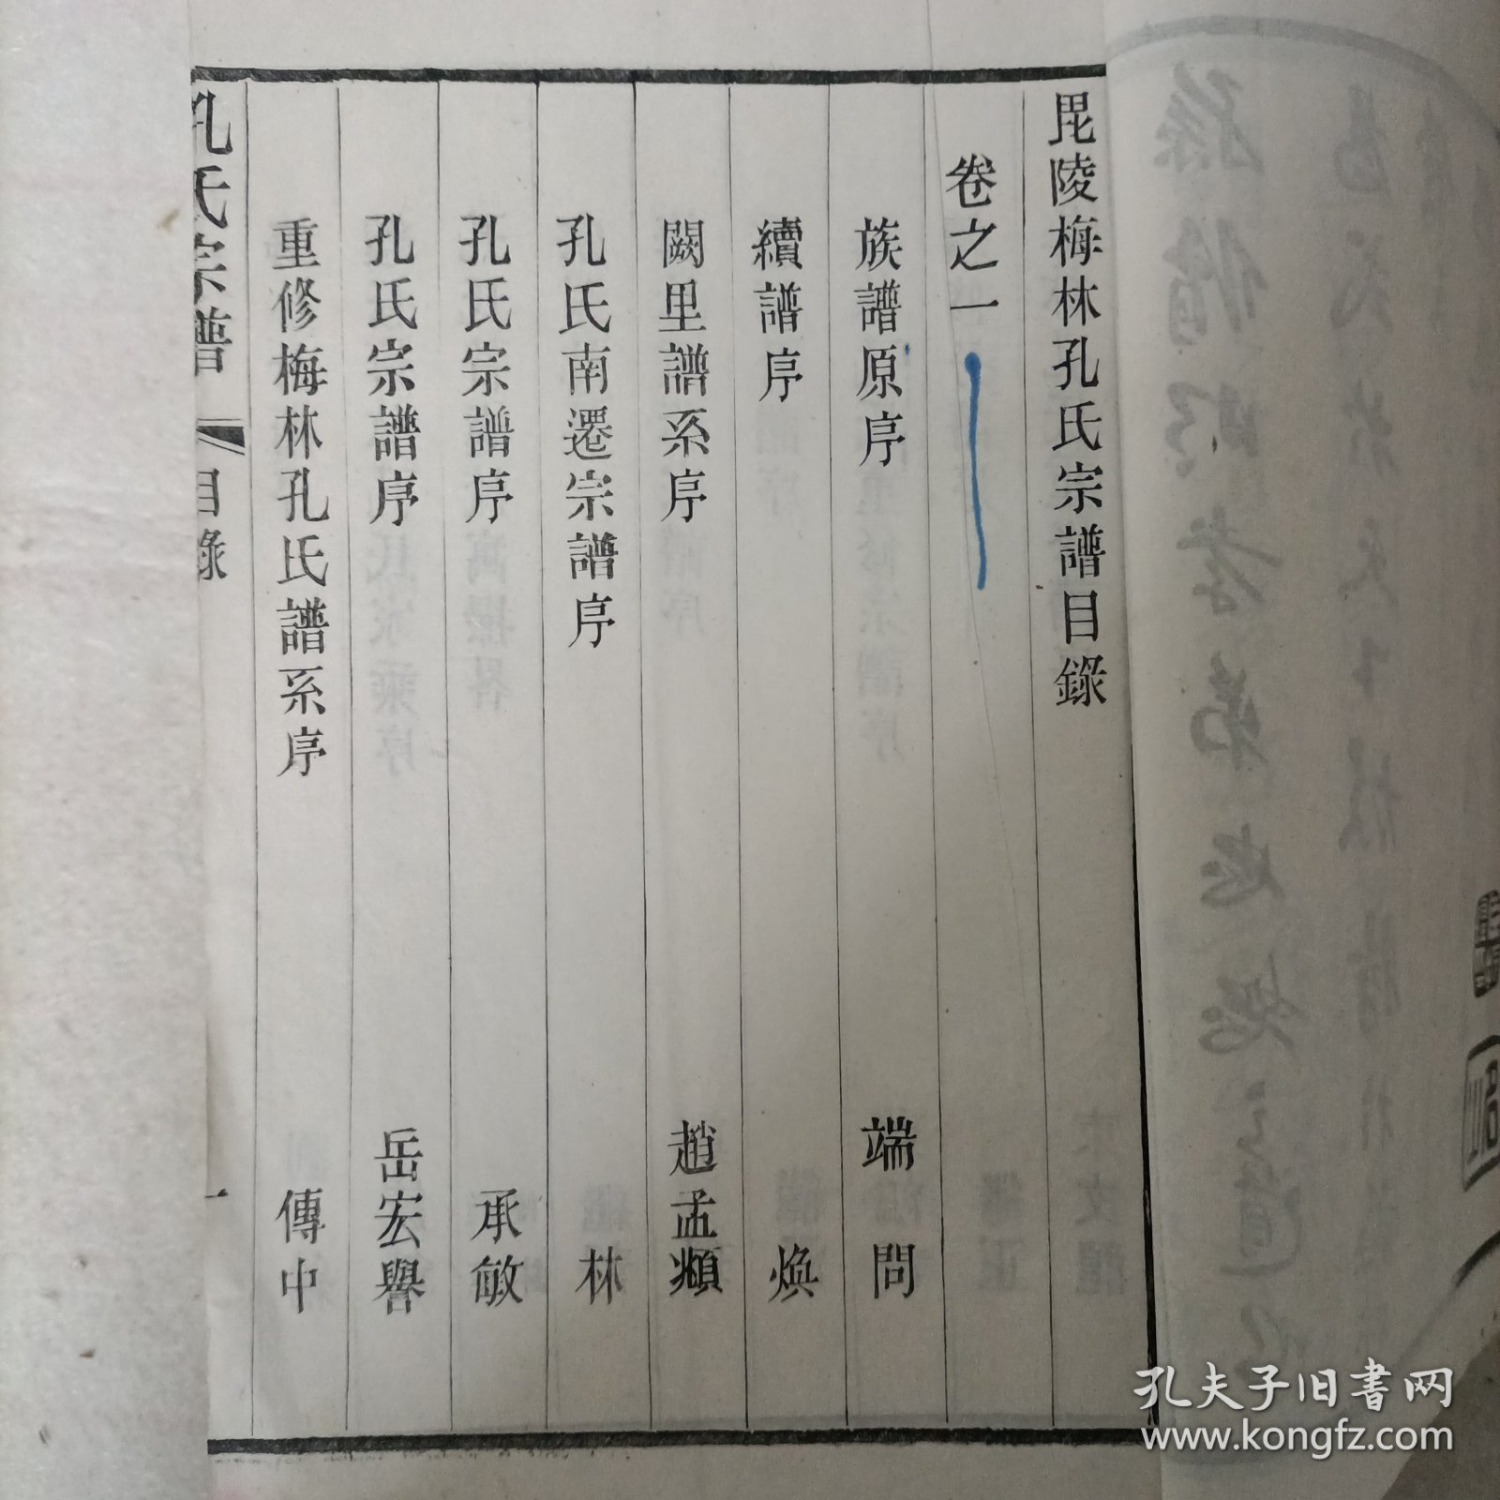 毘陵梅林孔氏宗譜目錄
卷之一
族譜原序 端問
續譜序 煥
闕里譜系序 趙孟頫
孔氏南遷宗譜序 林
孔氏宗譜序 承敏
孔氏宗譜序 岳宏譽
重修梅林孔氏譜系序 傳中
孔氏宗譜 目錄 一
孔夫子旧書网
www.kongfz.com